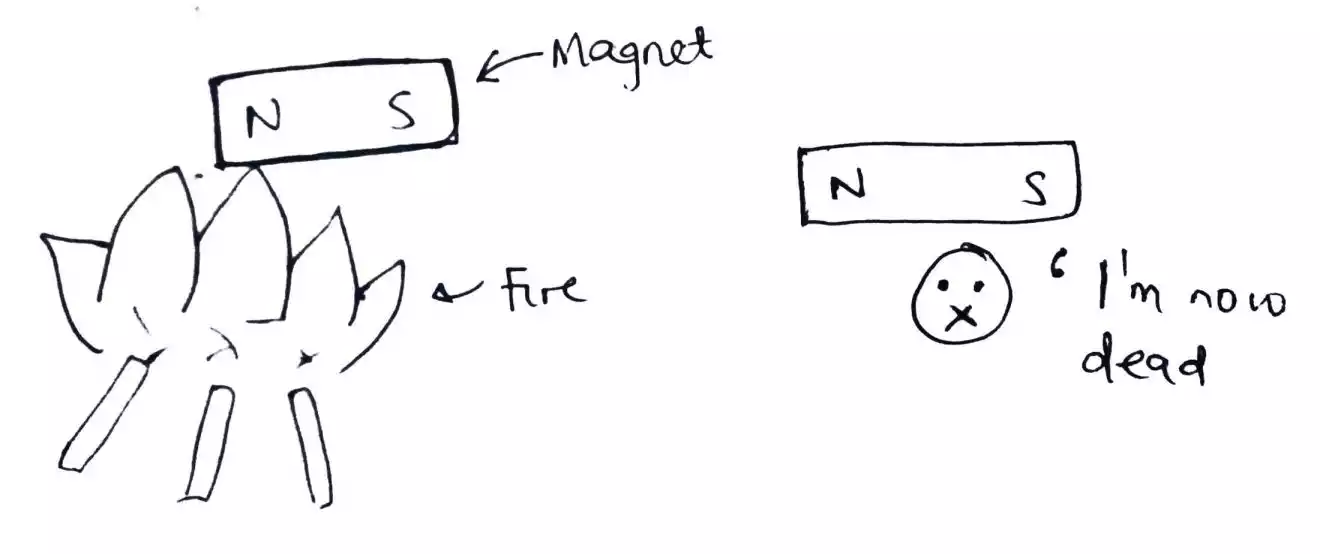 Magnet
N S
Fire
N S
‘ I'm now
dead